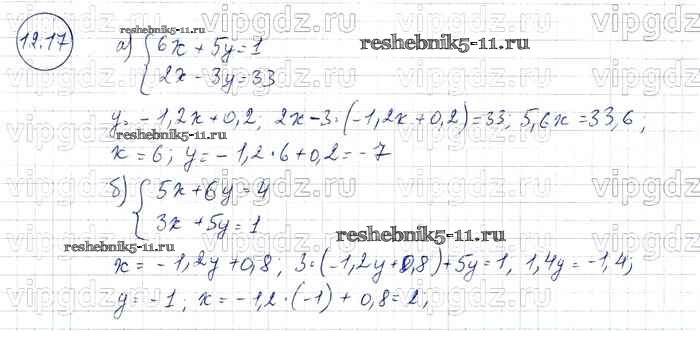 12.17
а) { 6x + 5y = 1
2x - 3y = 33
y = -1,2x + 0,2; 2x - 3·(-1,2x + 0,2) = 33; 5,6x = 33,6;
x = 6; y = -1,2·6 + 0,2 = -7
б) { 5x + 6y = 4
3x + 5y = 1
x = -1,2y + 0,8; 3·(-1,2y + 0,8) + 5y = 1, 1,4y = -1,4;
y = -1; x = -1,2·(-1) + 0,8 = 2;
reshebnik5-11.ru
reshebnik5-11.ru
reshebnik5-11.ru
reshebnik5-11.ru
vipgdz.ru